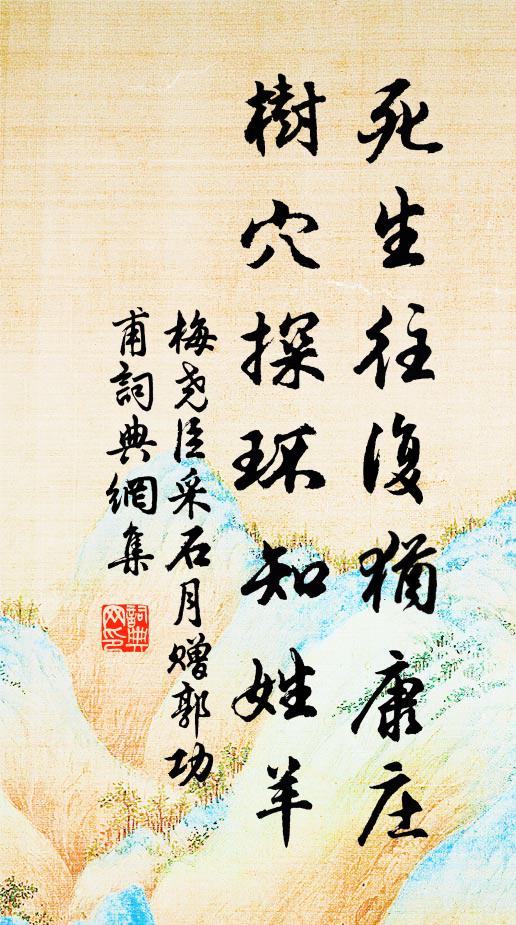 死生往復猶康庄
樹穴探环知姓羊
梅尧臣采石月赠郭功
甫詞典網集
詞典
网印